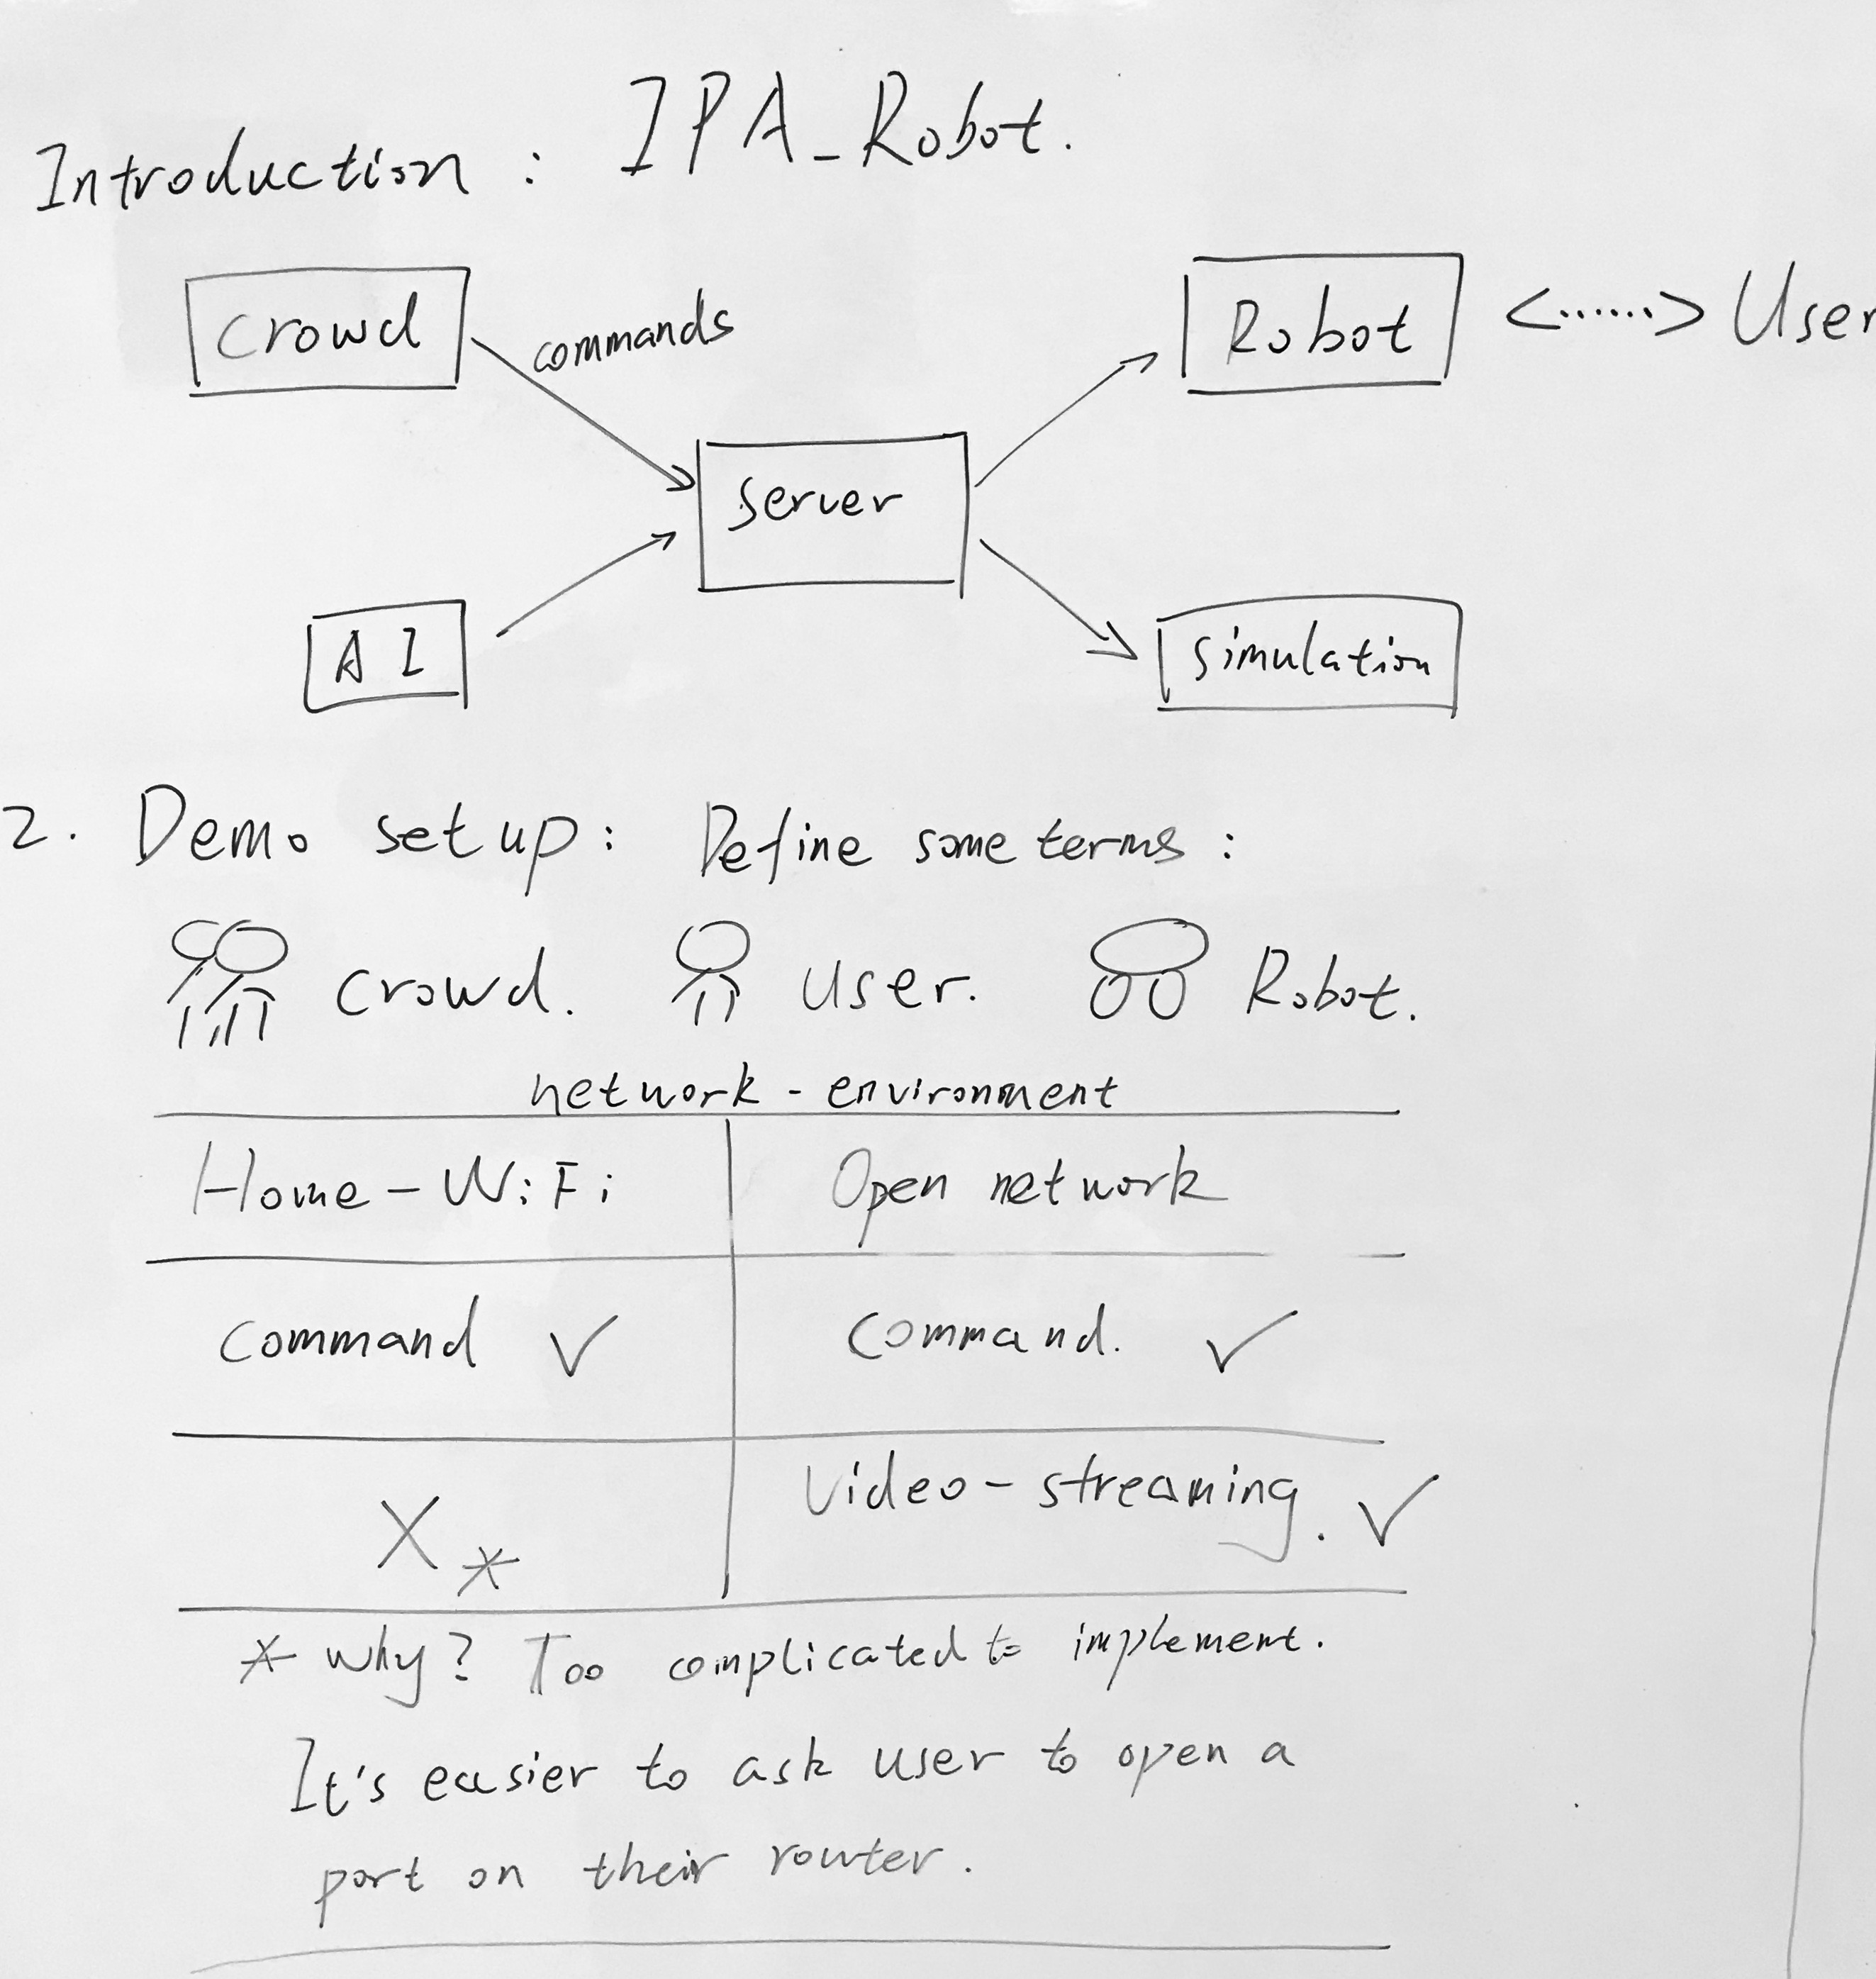 Introduction : IPA_Robot.
crowd
commands
Robot <······> User
server
AI
simulation
2. Demo set up : Define some terms :
crowd. user. Robot.
network - environment
Home - WiFi Open network
command ✓ command. ✓
X * video - streaming. ✓
* why? Too complicated to implement.
It's easier to ask user to open a
port on their router.